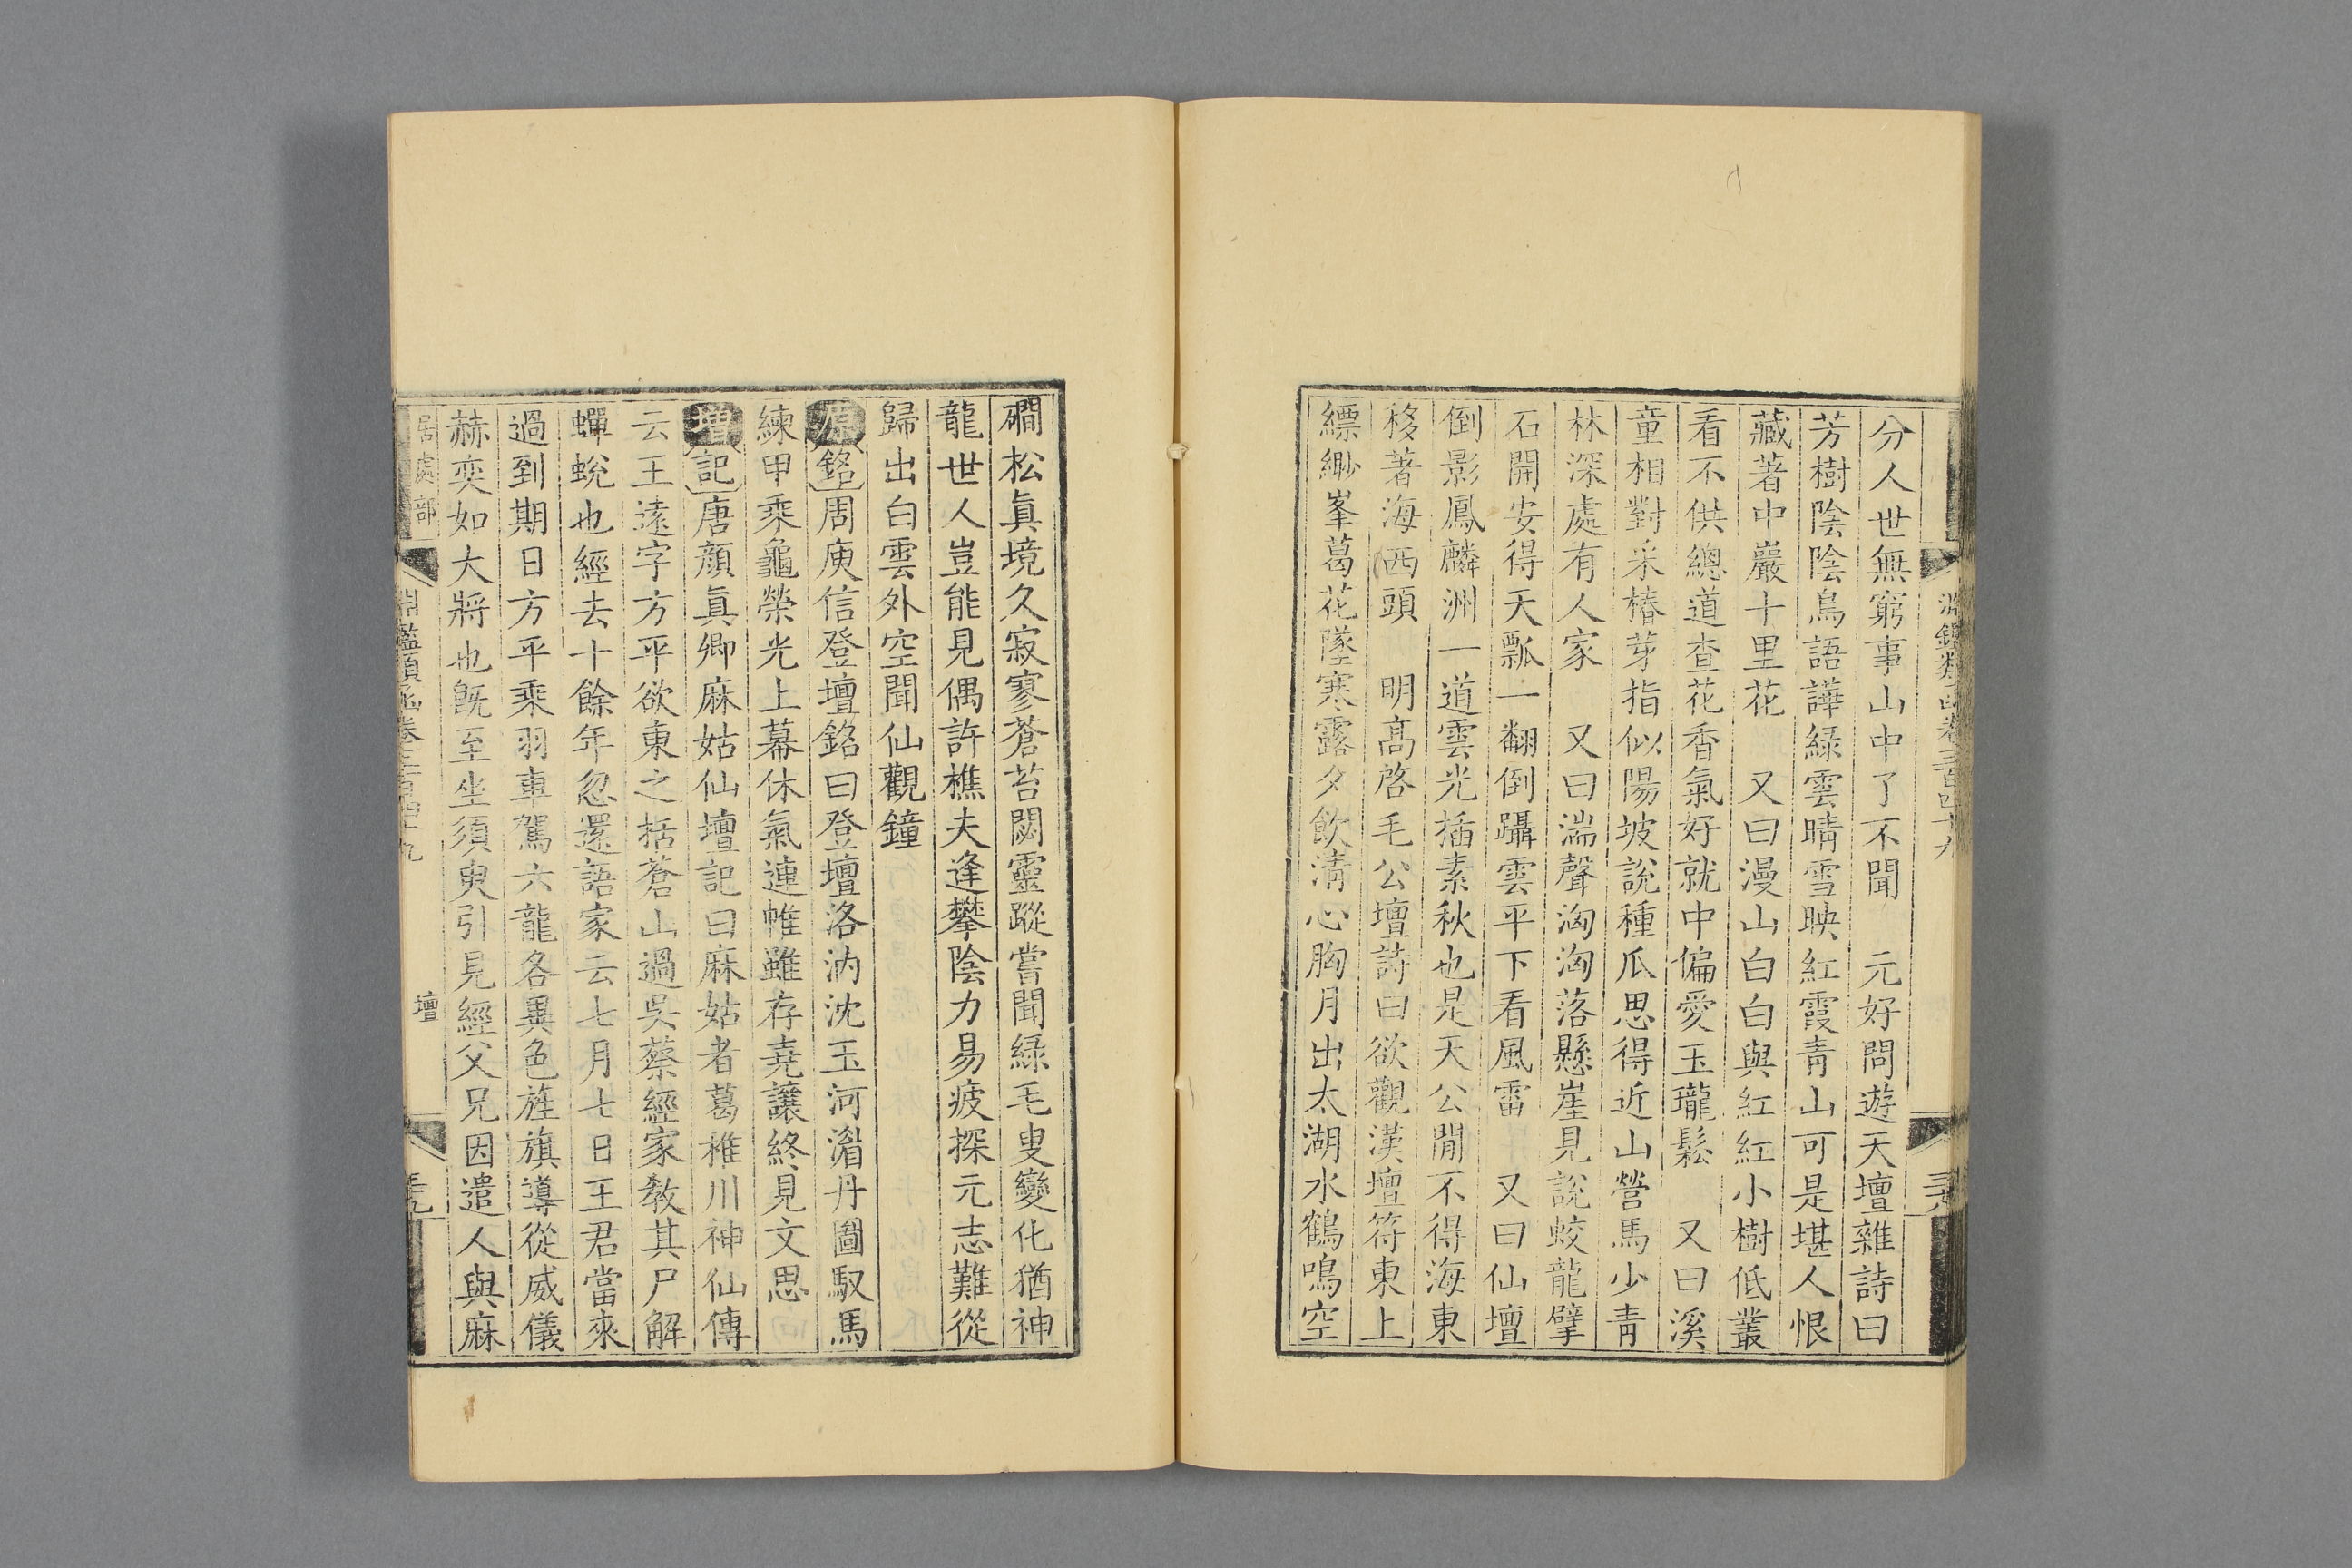 分人世無窮事山中了不聞　元好問遊天壇雜詩曰
芳樹陰陰鳥語譁綠雲晴雪映紅霞青山可是堪人恨
藏著中巖十里花　又曰漫山白白與紅紅小樹低叢
看不供總道查花香氣好就中偏愛玉瓏鬆　又曰溪
童相對采椿芽指似陽坡說種瓜思得近山營馬少青
林深處有人家　又曰湍聲洶洶落懸崖見說蛟龍擘
石開安得天瓢一翻倒躡雲平下看風雷　又曰仙壇
倒影鳳麟洲一道雲光插素秋也是天公閒不得海東
移著海西頭　明高啓毛公壇詩曰欲觀漢壇符東上
縹緲峯葛花墜寒露夕飲清心胸月出太湖水鶴鳴空
磵松眞境久寂寥蒼苔閟靈蹤嘗聞綠毛叟變化猶神
龍世人豈能見偶許樵夫逢攀陰力易疲探元志難從
歸出白雲外空聞仙觀鐘
原銘周庾信登壇銘曰登壇洛汭沈玉河湄丹圖馭馬
練甲乘龜榮光上幕休氣連帷雖存堯讓終見文思
增記唐顏眞卿麻姑仙壇記曰麻姑者葛稚川神仙傳
云王遠字方平欲東之括蒼山過吳蔡經家敎其尸解
蟬蛻也經去十餘年忽還語家云七月七日王君當來
過到期日方平乘羽車駕六龍各異色旌旗導從威儀
赫奕如大將也旣至坐須臾引見經父兄因遣人與麻
居處部　淵鑑類函卷三百四十九　壇